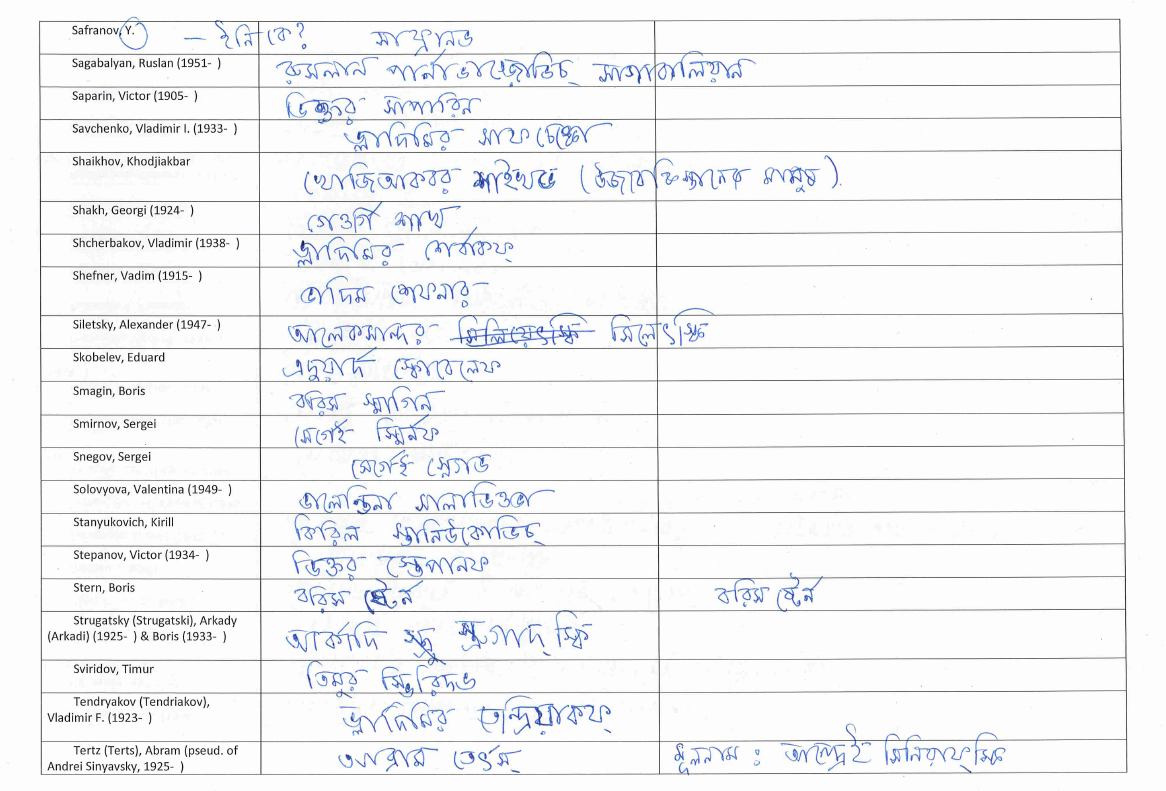 Safranov, Y. — ইনি কে? সাফ্রানভ
Sagabalyan, Ruslan (1951- ) রুসলান সাগাবালিয়ান
Saparin, Victor (1905- ) ভিক্তর সাপারিন
Savchenko, Vladimir I. (1933- ) ভ্লাদিমির সাফচেঙ্কো
Shaikhov, Khodjiakbar খোজিআকবর শাইখভ (উজবেকিস্তানের মানুষ).
Shakh, Georgi (1924- ) গেওর্গি শাখ
Shcherbakov, Vladimir (1938- ) ভ্লাদিমির শের্বাকফ্
Shefner, Vadim (1915- ) ভাদিম শেফনার্
Siletsky, Alexander (1947- ) আলেকসান্দর সিলিয়েৎস্কি সিলেৎস্কি
Skobelev, Eduard এদুয়ার্দ স্কোবেলেফ
Smagin, Boris বরিস স্মাগিন
Smirnov, Sergei সের্গেই স্মির্নফ
Snegov, Sergei সের্গেই স্নেগভ
Solovyova, Valentina (1949- ) ভালেন্তিনা সালাভিওভা
Stanyukovich, Kirill কিরিল স্তানিউকোভিচ্
Stepanov, Victor (1934- ) ভিক্তর স্তেপানফ
Stern, Boris বরিস ষ্টের্ন বরিস ষ্টের্ন
Strugatsky (Strugatski), Arkady
(Arkadi) (1925- ) & Boris (1933- ) আর্কাদি স্ত্রু স্ত্রুগাদ্‌স্কি
Sviridov, Timur তিমুর স্ভিরিদভ
Tendryakov (Tendriakov),
Vladimir F. (1923- ) ভ্লাদিমির তেন্দ্রিয়াকফ্
Tertz (Terts), Abram (pseud. of
Andrei Sinyavsky, 1925- ) আব্রাম তের্ৎস্ মূলনাম : আন্দ্রেই সিনিয়াফ্‌স্কি